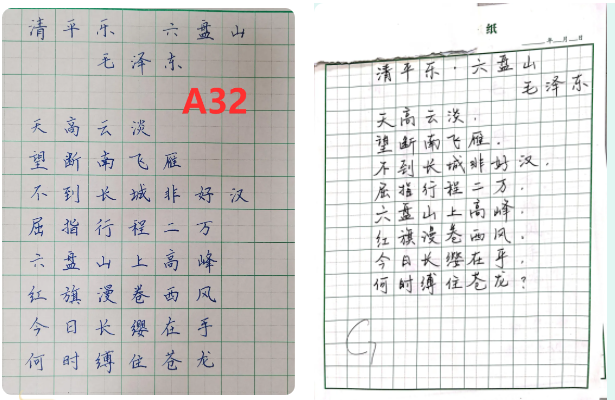 清平乐 六盘山
毛泽东
A32
天高云淡
望断南飞雁
不到长城非好汉
屈指行程二万
六盘山上高峰
红旗漫卷西风
今日长缨在手
何时缚住苍龙
纸
年 月 日
清平乐·六盘山
毛泽东
天高云淡.
望断南飞雁.
不到长城非好汉.
屈指行程二万.
六盘山上高峰.
红旗漫卷西风.
今日长缨在手.
何时缚住苍龙?